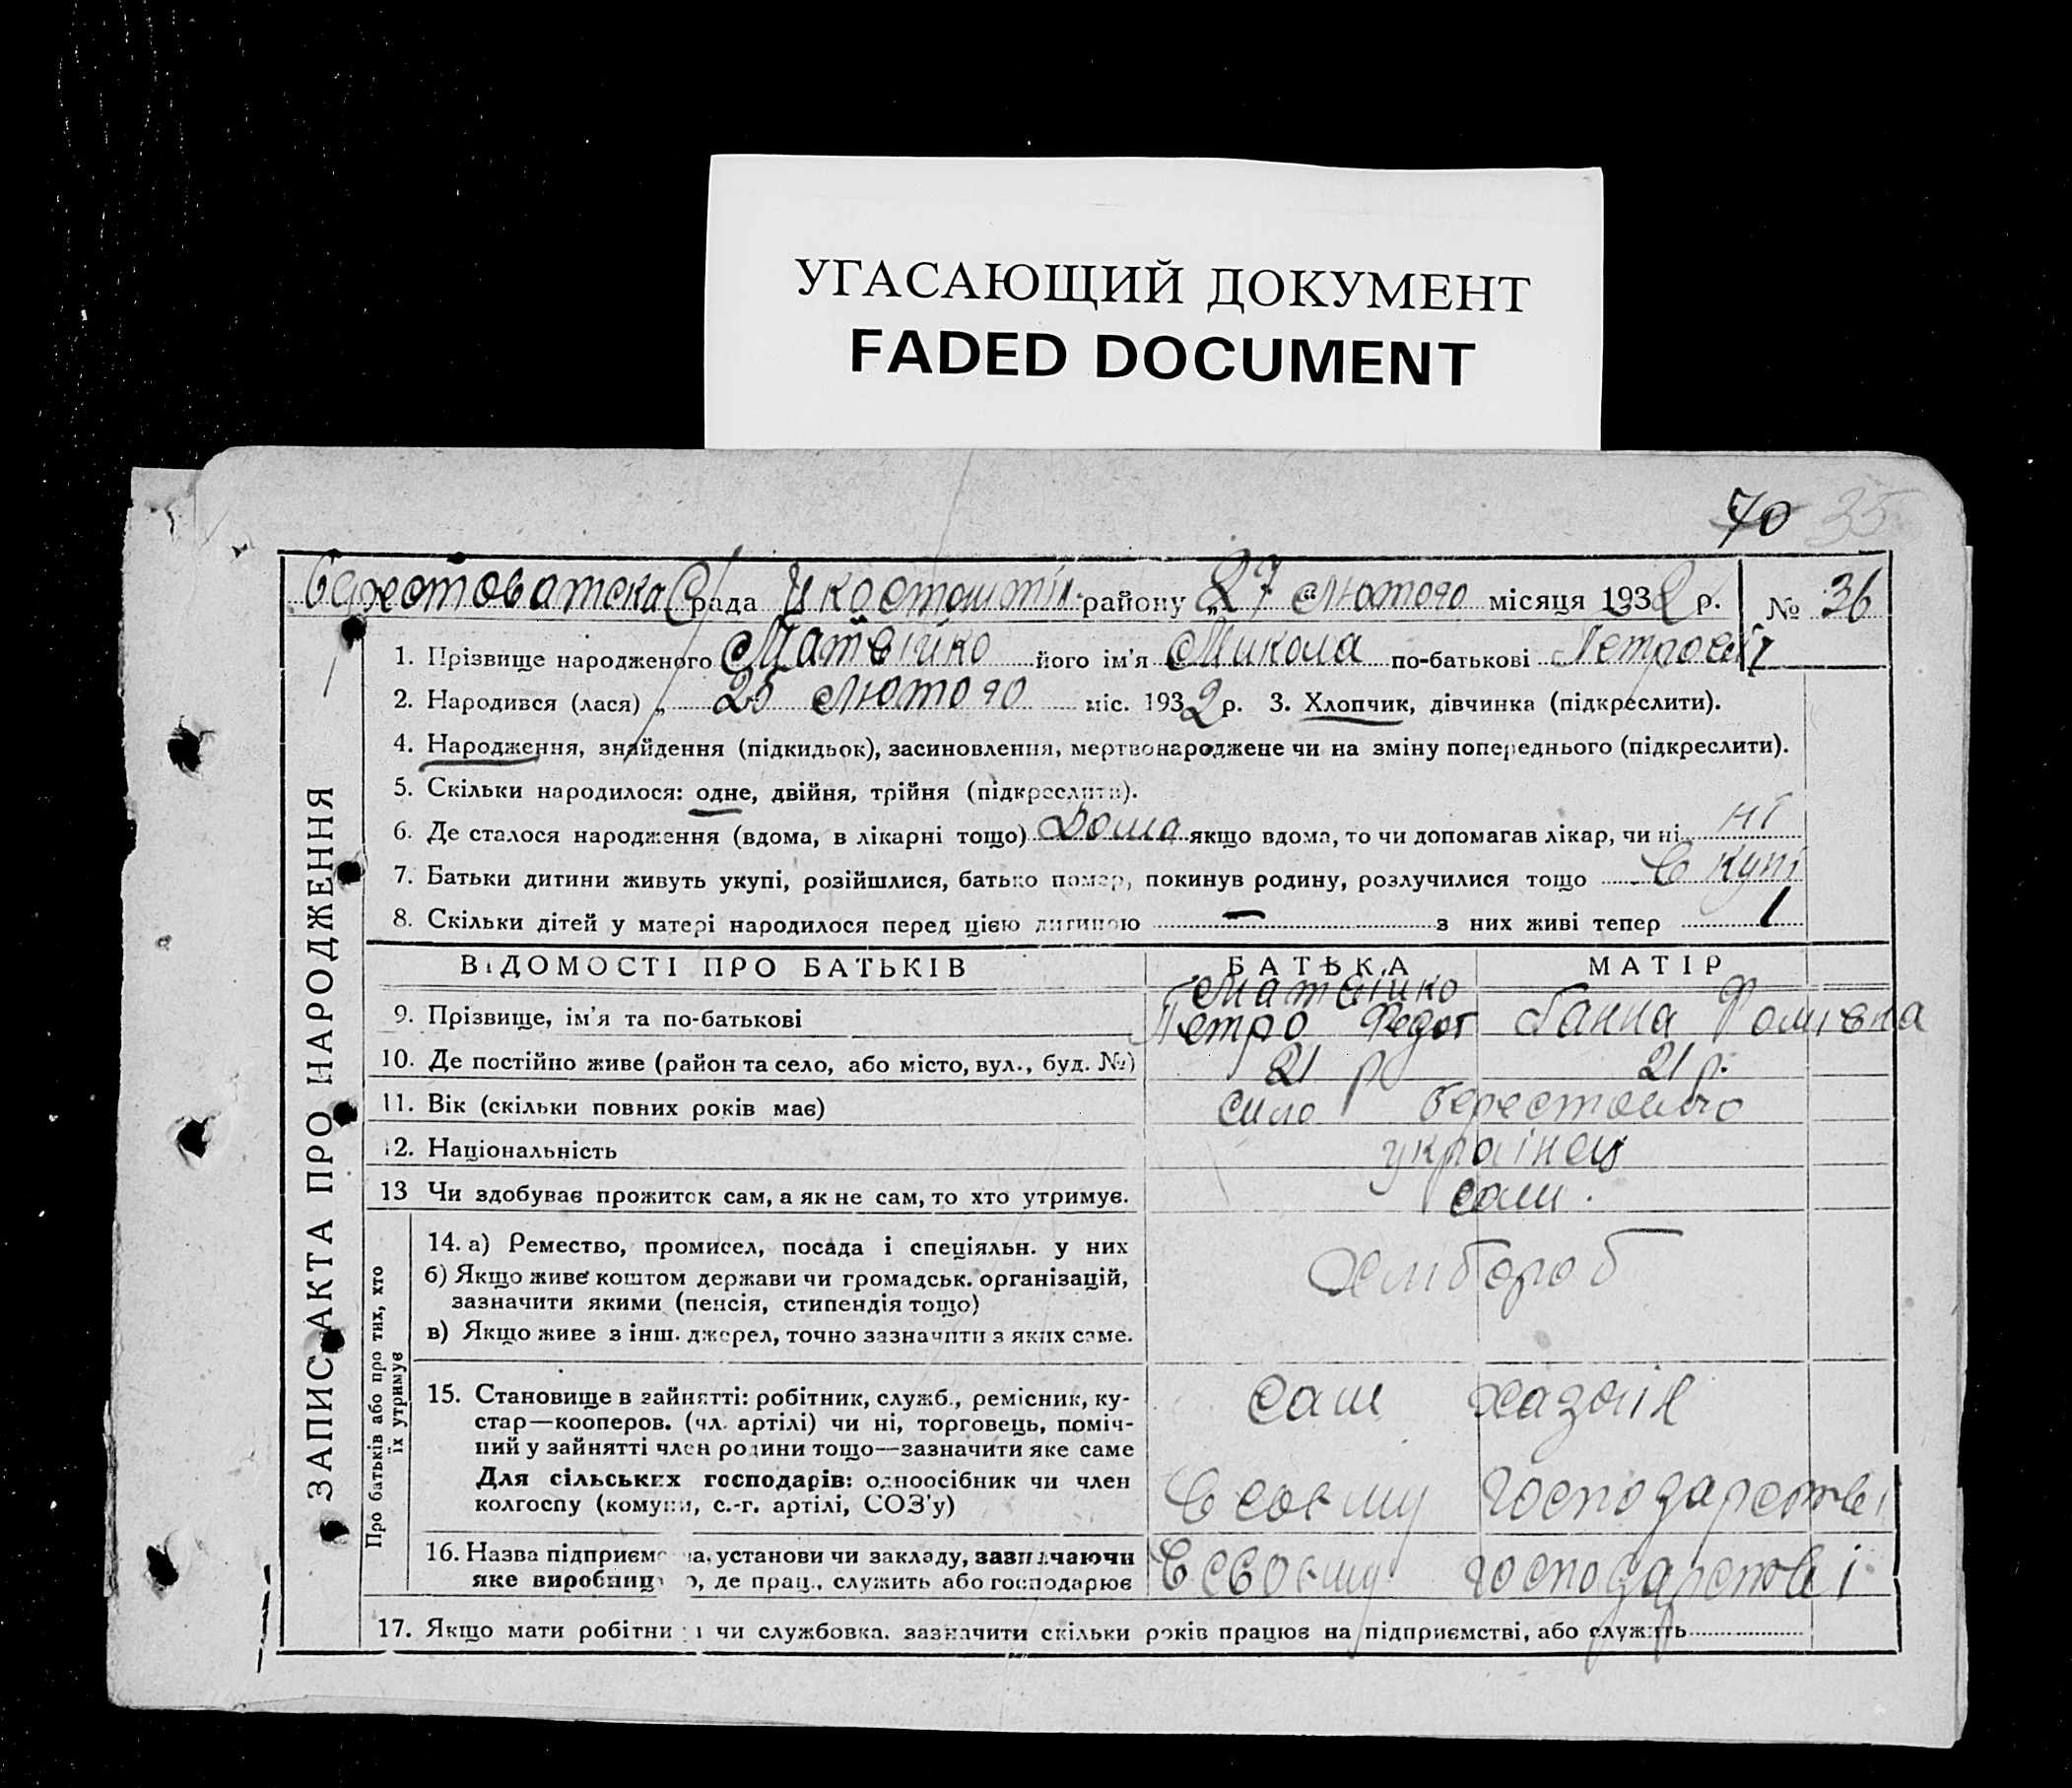 УГАСАЮЩИЙ ДОКУМЕНТ
FADED DOCUMENT
70 35
Берестоватска С/рада району „27“ Лютого місяця 1932 р. № 36
1. Прізвище народженого Матвійко його ім'я Микола по-батькові Петрович
2. Народився (лася) „ 25 Лютого міс. 1932 р. 3. Хлопчик, дівчинка (підкреслити).
4. Народження, знайдення (підкидьок), засиновлення, мертвонароджене чи на зміну попереднього (підкреслити).
5. Скільки народилося: одне, двійня, трійня (підкреслити).
6. Де сталося народження (вдома, в лікарні тощо) Дома якщо вдома, то чи допомагав лікар, чи ні ні
7. Батьки дитини живуть укупі, розійшлися, батько помер, покинув родину, розлучилися тощо В купі
8. Скільки дітей у матері народилося перед цією дитиною — з них живі тепер 1
ВІДОМОСТІ ПРО БАТЬКІВ БАТЬКА МАТІР
Матвійко
9. Прізвище, ім'я та по-батькові Петро Федот Ганна Фомівна
10. Де постійно живе (район та село, або місто, вул., буд. №) 21 р 21 р.
11. Вік (скільки повних років має) село
12. Національність українец
13 Чи здобуває прожиток сам, а як не сам, то хто утримує. сам.
14. а) Ремество, промисел, посада і спеціяльн. у них
б) Якщо живе коштом держави чи громадськ. організацій,
зазначити якими (пенсія, стипендія тощо)
в) Якщо живе з інш. джерел, точно зазначити з яких саме.
15. Становище в зайнятті: робітник, служб., ремісник, ку-
стар—кооперов. (чл. артілі) чи ні, торговець, поміч-
ний у зайнятті член родини тощо—зазначити яке саме
сам хазяїн
Для сільських господарів: одноосібник чи член
колгоспу (комуни, с.-г. артілі, СОЗ'у)
В своєму господарстві
16. Назва підприємства, установи чи закладу, зазначаючи
яке виробництво, де прац., служить або господарює
В своєму господарстві
17. Якщо мати робітниця чи службовка, зазначити скільки років працює на підприємстві, або служить
ЗАПИС АКТА ПРО НАРОДЖЕННЯ
Про батьків або про тих, хто
їх утримує